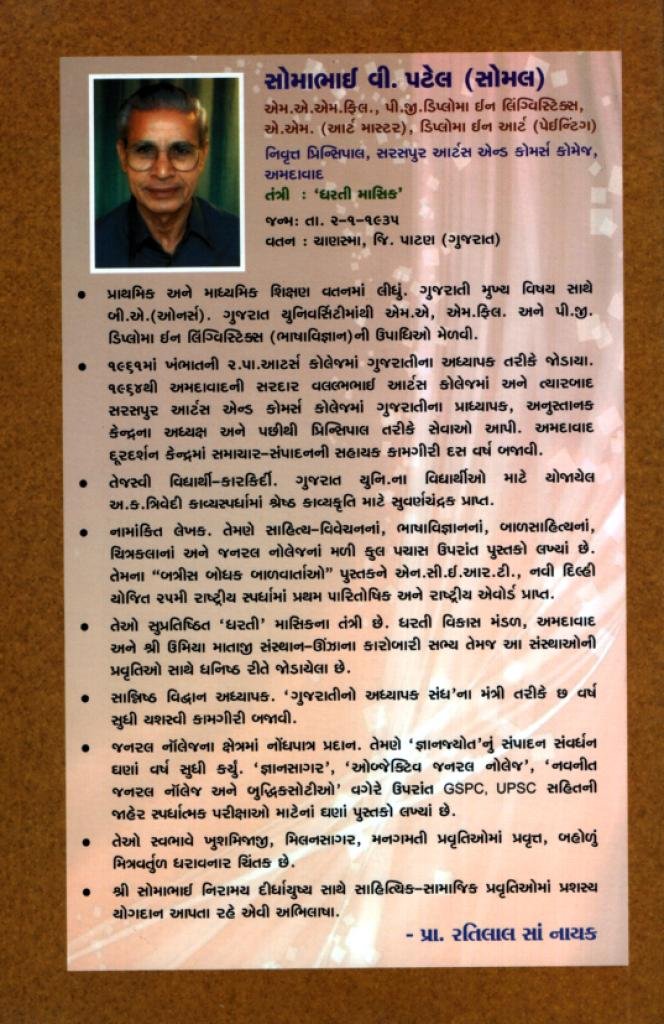 સોમાભાઈ વી. પટેલ (સોમલ)
એમ.એ.એમ.ફિલ., પી.જી.ડિપ્લોમા ઈન લિંગ્વિસ્ટિક્સ,
એ.એમ. (આર્ટ માસ્ટર), ડિપ્લોમા ઈન આર્ટ (પેઈન્ટિંગ)
નિવૃત્ત પ્રિન્સિપાલ, સરસપુર આર્ટસ એન્ડ કોમર્સ કોમેજ,
અમદાવાદ
તંત્રી : ‘ધરતી માસિક’
જન્મ: તા. ૨-૧-૧૯૩૫
વતન : ચાણસ્મા, જિ. પાટણ (ગુજરાત)
• પ્રાથમિક અને માધ્યમિક શિક્ષણ વતનમાં લીધું. ગુજરાતી મુખ્ય વિષય સાથે
બી.એ.(ઓનર્સ). ગુજરાત યુનિવર્સિટીમાંથી એમ.એ, એમ.ફિલ. અને પી.જી.
ડિપ્લોમા ઈન લિંગ્વિસ્ટિક્સ (ભાષાવિજ્ઞાન)ની ઉપાધિઓ મેળવી.
• ૧૯૬૧માં ખંભાતની ર.પા.આટર્સ કોલેજમાં ગુજરાતીના અધ્યાપક તરીકે જોડાયા.
૧૯૬૪થી અમદાવાદની સરદાર વલલભભાઈ આર્ટસ કોલેજમાં અને ત્યારબાદ
સરસપુર આર્ટસ એન્ડ કોમર્સ કોલેજમાં ગુજરાતીના પ્રાધ્યાપક, અનુસ્તાનક
કેન્દ્રના અધ્યક્ષ અને પછીથી પ્રિન્સિપાલ તરીકે સેવાઓ આપી. અમદાવાદ
દૂરદર્શન કેન્દ્રમાં સમાચાર-સંપાદનની સહાયક કામગીરી દસ વર્ષ બજાવી.
• તેજસ્વી વિદ્યાર્થી-કારકિર્દી. ગુજરાત યુનિ.ના વિદ્યાર્થીઓ માટે યોજાયેલ
અ.ક.ત્રિવેદી કાવ્યસ્પર્ધામાં શ્રેષ્ઠ કાવ્યકૃતિ માટે સુવર્ણચંદ્રક પ્રાપ્ત.
• નામાંકિત લેખક. તેમણે સાહિત્ય-વિવેચનનાં, ભાષાવિજ્ઞાનનાં, બાળસાહિત્યનાં,
ચિત્રકલાનાં અને જનરલ નોલેજનાં મળી કુલ પચાસ ઉપરાંત પુસ્તકો લખ્યાં છે.
તેમના “બત્રીસ બોધક બાળવાર્તાઓ” પુસ્તકને એન.સી.ઈ.આર.ટી., નવી દિલ્હી
યોજિત ૨૫મી રાષ્ટ્રીય સ્પર્ધામાં પ્રથમ પારિતોષિક અને રાષ્ટ્રીય એવોર્ડ પ્રાપ્ત.
• તેઓ સુપ્રતિષ્ઠિત ‘ધરતી’ માસિકના તંત્રી છે. ધરતી વિકાસ મંડળ, અમદાવાદ
અને શ્રી ઉમિયા માતાજી સંસ્થાન-ઊંઝાના કારોબારી સભ્ય તેમજ આ સંસ્થાઓની
પ્રવૃતિઓ સાથે ધનિષ્ઠ રીતે જોડાયેલા છે.
• સાન્નિષ્ઠ વિદ્વાન અધ્યાપક. ‘ગુજરાતીનો અધ્યાપક સંઘ’ના મંત્રી તરીકે છ વર્ષ
સુધી યશસ્વી કામગીરી બજાવી.
• જનરલ નૉલેજના ક્ષેત્રમાં નોંધપાત્ર પ્રદાન. તેમણે ‘જ્ઞાનજ્યોત’નું સંપાદન સંવર્ધન
ઘણાં વર્ષ સુધી કર્યું. ‘જ્ઞાનસાગર’, ‘ઓબ્જેક્ટિવ જનરલ નોલેજ’, ‘નવનીત
જનરલ નૉલેજ અને બુદ્ધિકસોટીઓ’ વગેરે ઉપરાંત GSPC, UPSC સહિતની
જાહેર સ્પર્ધાત્મક પરીક્ષાઓ માટેનાં ઘણાં પુસ્તકો લખ્યાં છે.
• તેઓ સ્વભાવે ખુશમિજાજી, મિલનસાગર, મનગમતી પ્રવૃતિઓમાં પ્રવૃત્ત, બહોળું
મિત્રવર્તુળ ધરાવનાર ચિંતક છે.
• શ્રી સોમાભાઈ નિરામય દીર્ધાયુષ્ય સાથે સાહિત્યિક-સામાજિક પ્રવૃતિઓમાં પ્રશસ્ય
યોગદાન આપતા રહે એવી અભિલાષા.
- પ્રા. રતિલાલ સાં નાયક